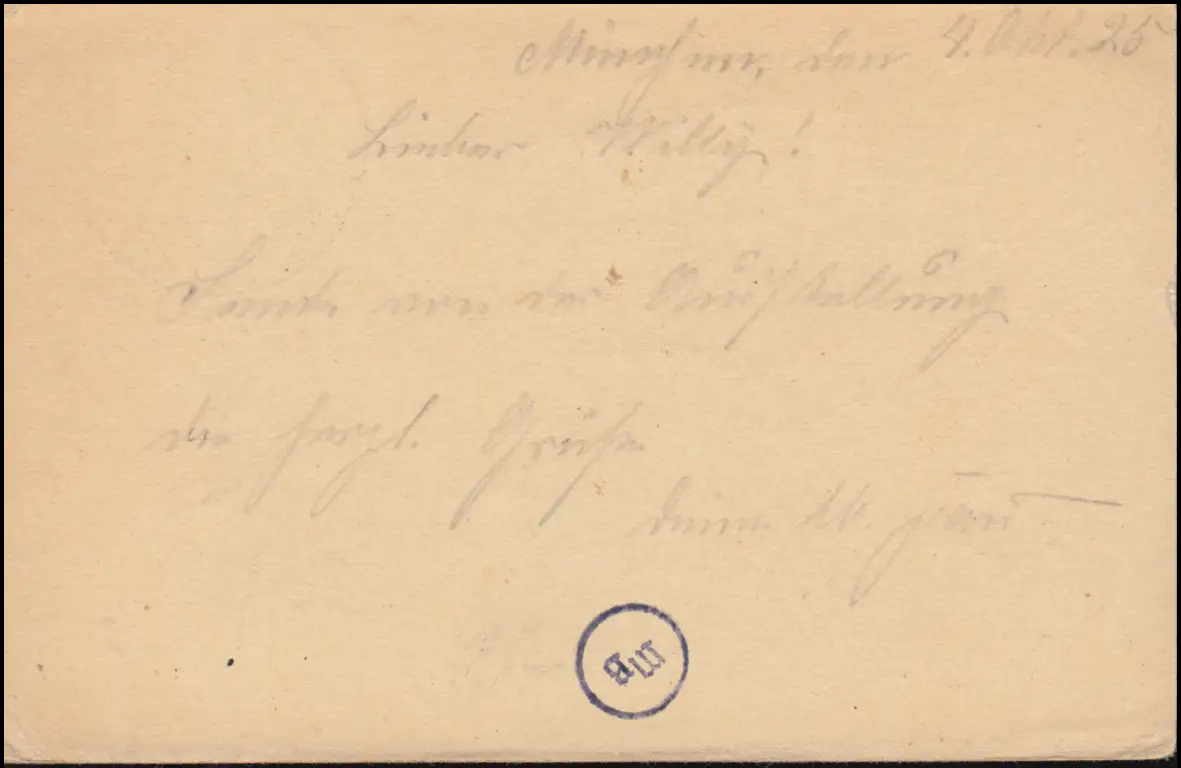 München, den 4. Okt. 25
Lieber Willy!
Sende von der Ausstellung
die herzl. Grüße
Deine